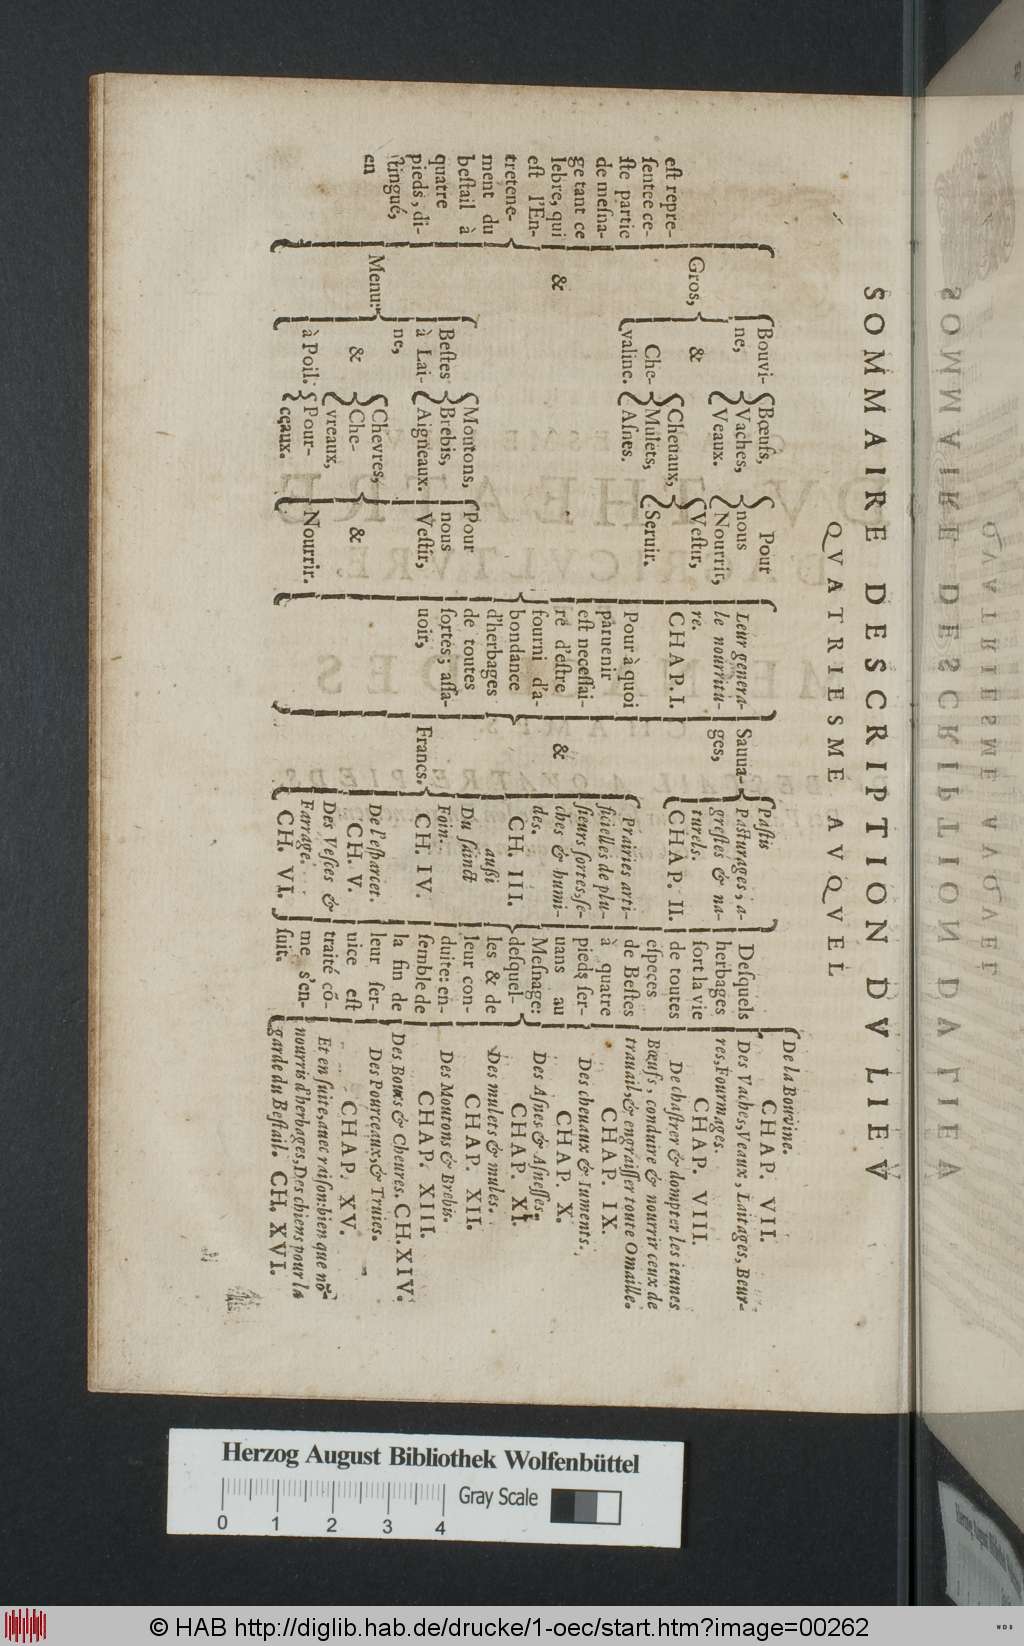 SOMMAIRE DESCRIPTION DV LIEV
QVATRIESME AVQVEL
est repre-
sentee ce-
ste partie
de mesna-
ge tant ce
lebre, qui
est l'En-
tretene-
ment du
bestail à
quatre
pieds, di-
stingué,
en
Gros,
&
Menu:
Bouvi-
ne,
&
Che-
valine.
Bestes
à Lai-
ne,
&
à Poil:
Bœufs,
Vaches,
Veaux.
Chevaux,
Mulets,
Asnes.
Moutons,
Brebis,
Aigneaux.
Chevres,
Che-
vreaux,
Pour-
ceaux.
Pour
nous
Nourrir,
Vestir,
Seruir.
Pour
nous
Vestir,
&
Nourrir.
Leur genera-
le nourritu-
re.
CHAP. I.
Pour à quoi
paruenir
est necessai-
re d'estre
fourni d'a-
bondance
d'herbages
de toutes
sortes; assa-
uoir,
Sauua-
ges,
&
Francs.
Pastis
Pasturages, a-
grestes & na-
turels.
CHAP. II.
Prairies arti-
ficielles de plu-
sieurs sortes, se-
ches & humi-
des.
CH. III.
aussi
Du sainct
Foin.
CH. IV.
De l'esparcet.
CH. V.
Des Vesces &
Farrage.
CH. VI.
Desquels
herbages
sort la vie
de toutes
especes
de Bestes
à quatre
pieds ser-
uans au
Mesnage:
desquel-
les & de
leur con-
duite: en-
semble de
la fin de
leur ser-
uice est
traité cō-
me s'en-
suit.
De la Bouvine.
CHAP. VII.
Des Vaches, Veaux, Laitages, Beur-
res, Fourmages.
CHAP. VIII.
De chastrer & dompter les ieunes
Bœufs, conduire & nourrir ceux de
trauail, & engraisser toute Omaille.
CHAP. IX.
Des cheuaux & Iuments.
CHAP. X.
Des Asnes & Asnesses.
CHAP. XI.
Des mulets & mules.
CHAP. XII.
Des Moutons & Brebis.
CHAP. XIII.
Des Boucs & Cheures. CH. XIV.
Des Pourceaux, & Truies.
CHAP. XV.
Et en suite, auec raison: bien que nō
nourris d'herbages, Des chiens pour la
garde du Bestail. CH. XVI.
Herzog August Bibliothek Wolfenbüttel
Gray Scale
0 1 2 3 4
© HAB http://diglib.hab.de/drucke/1-oec/start.htm?image=00262